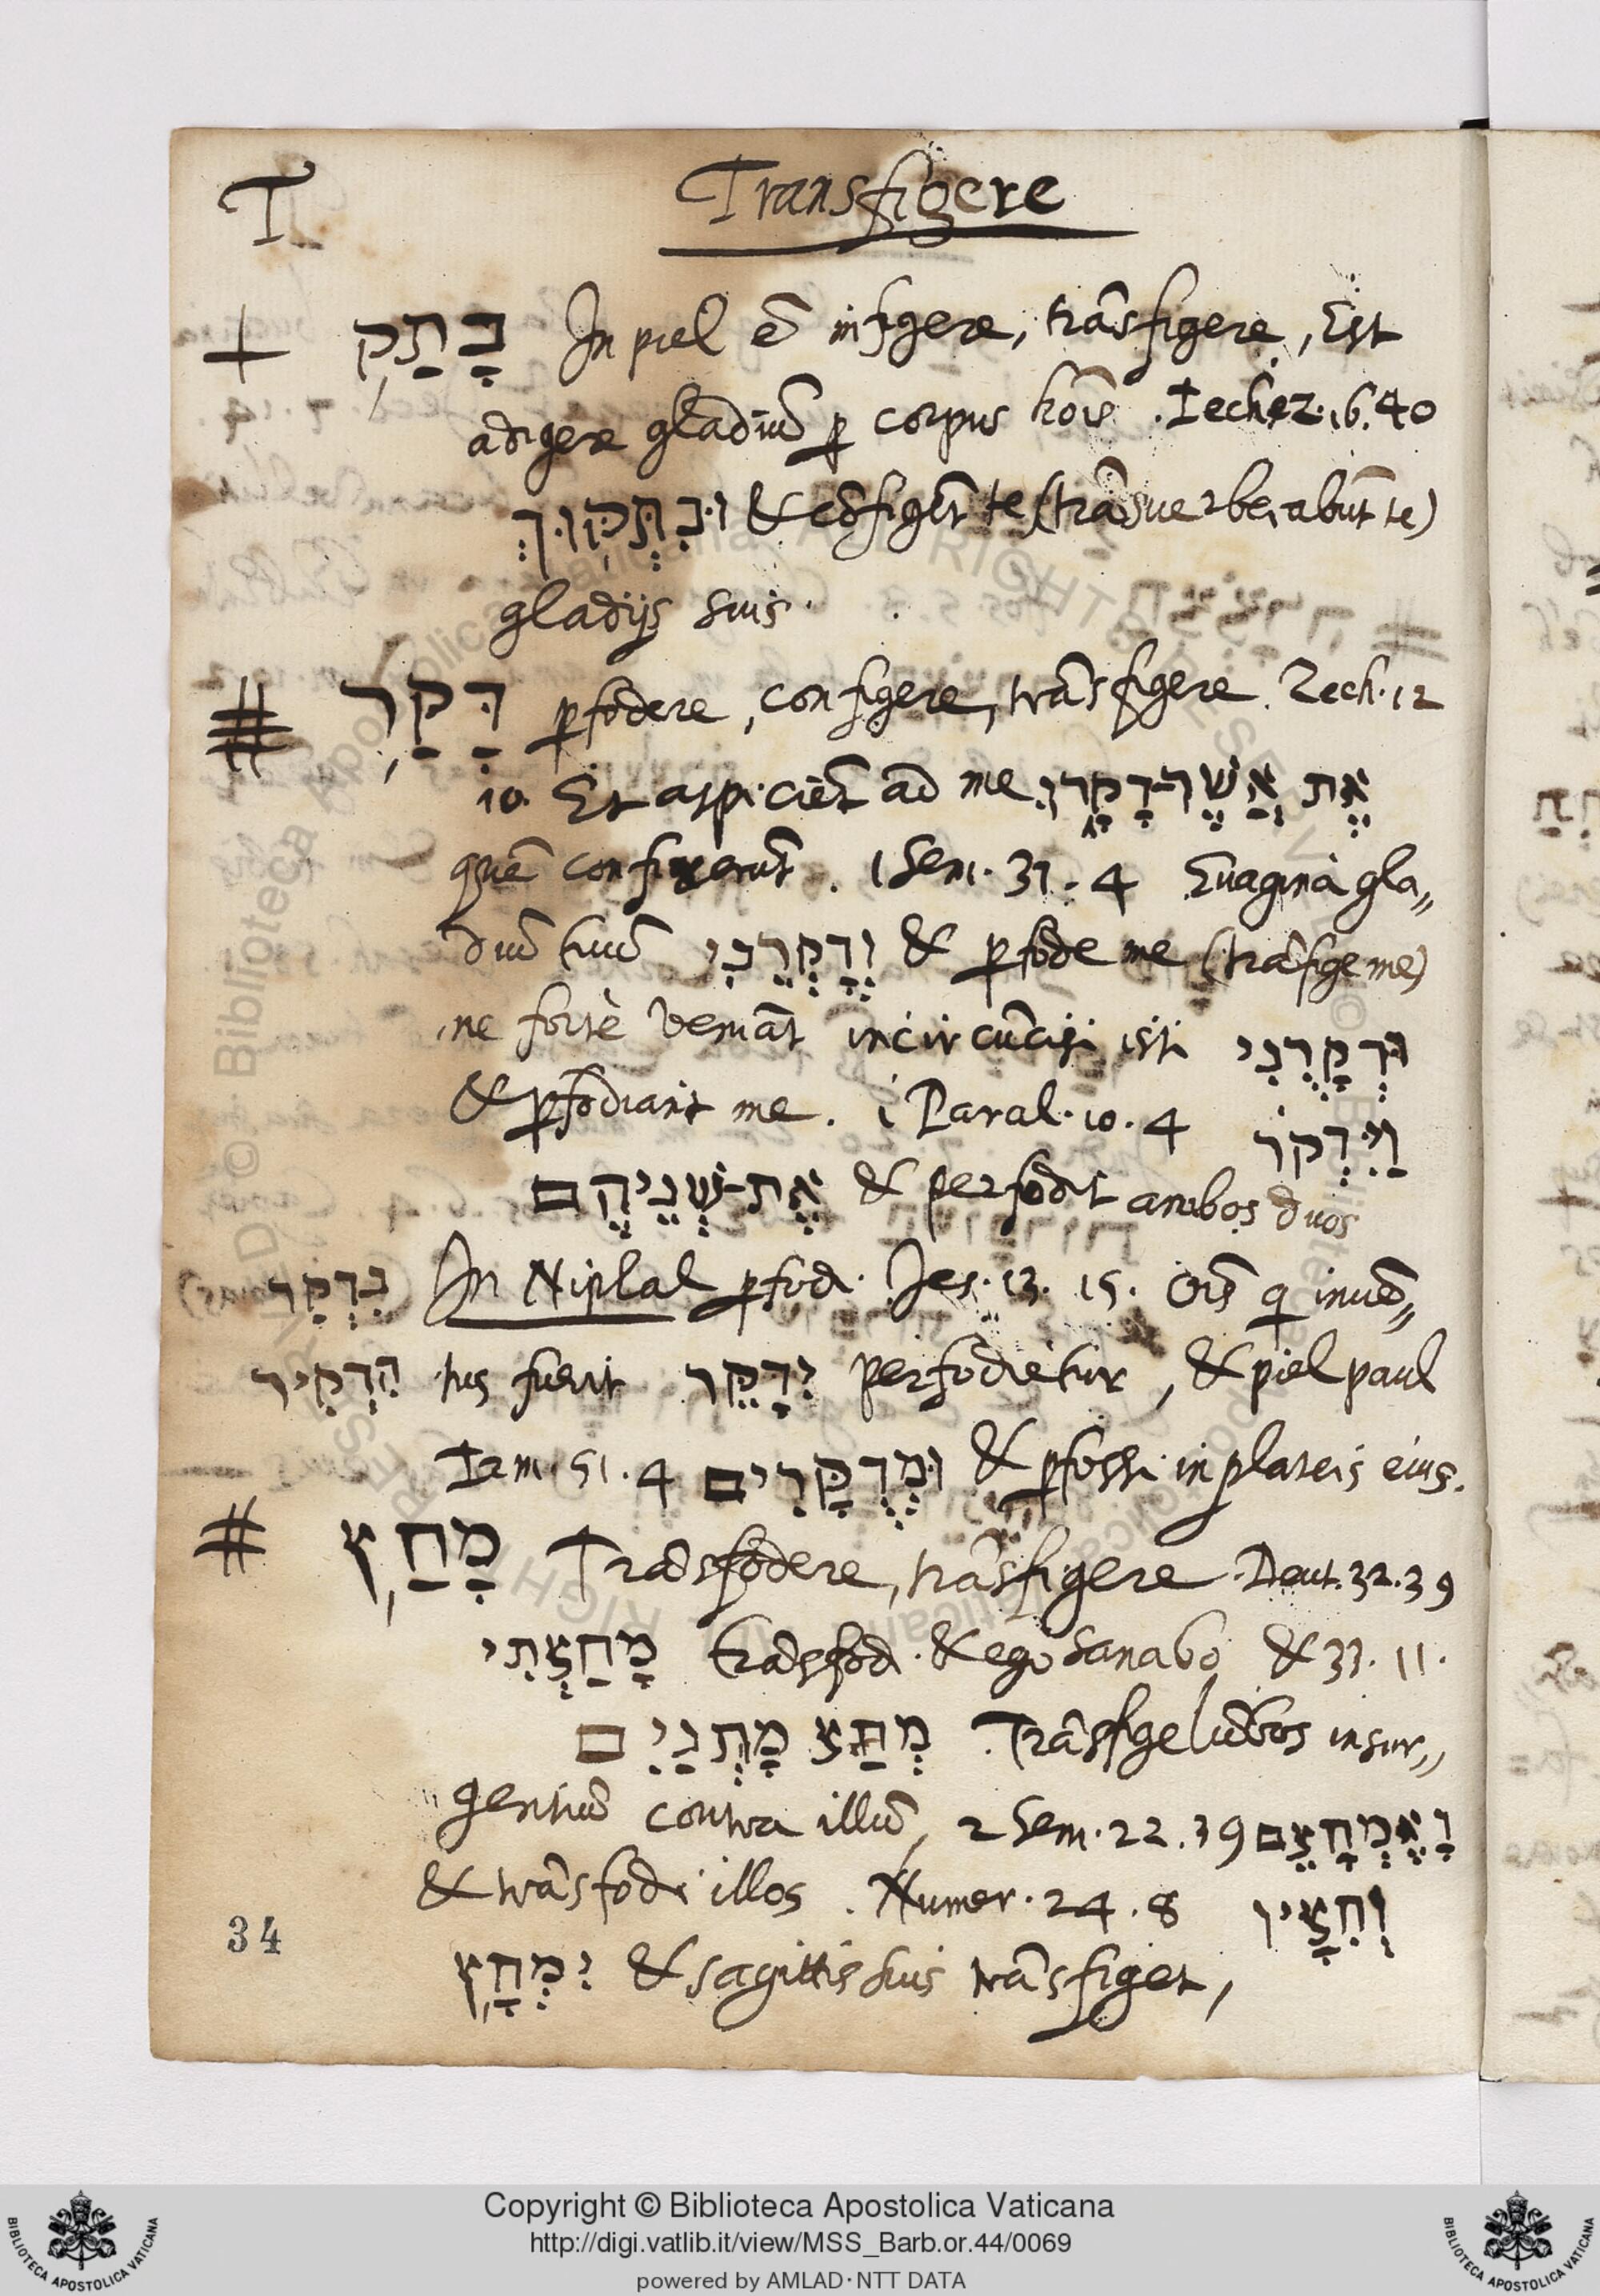 T Transfigere
+ בָּתַק In piel ē infigere, trāsfigere, Est
adigere gladiū p corpus hoīs. Iechez. 16. 40
וּבִתְּקוּךְ & cōfigēt te (trāsuerberabūt te)
gladijs suis.
דָּקַר pfodere, configere, trāsfigere. Zech. 12
10. Et aspiciēt ad me אֶת אֲשֶׁר־דָּקָרוּ
quē confixerūt. 1 Sem. 31. 4 Euagina gla„
diū tuū וְדָקְרֵנִי & pfode me (trāfige me)
ne fortè veniāt incircūcisi isti וּדְקָרֻנִי
& pfodiant me. i Paral. 10. 4 וַיִּדְקֹר
אֶת־שְׁנֵיהֶם & perfodit ambos duos
נִדְקַר In Niplal pfod. Jes. 13. 15. Oīs q inuē„
הִדְקִיר tus fuerit יִדָּקֵר perfodietur, & piel paul
Iam. 51. 4 וּמְדֻקָּרִים & pfossi in plateis eius.
# מָחַץ Trāsfodere, trāsfigere. Deut. 32. 39
מָחַצְתִּי trāsfod. & ego sanabo & 33. 11.
מְחַץ מָתְנַיִם Trāsfige lūbos insur„
gentiū contra illū, 2 Sem. 22. 39 וָאֶמְחָצֵם
& trāsfodi illos. Numer. 24. 8 וְחִצָּיו
יִמְחָץ & sagittis suis trāsfiget,
34
Copyright © Biblioteca Apostolica Vaticana
http://digi.vatlib.it/view/MSS_Barb.or.44/0069
powered by AMLAD·NTT DATA
BIBLIOTECA APOSTOLICA VATICANA
BIBLIOTECA APOSTOLICA VATICANA